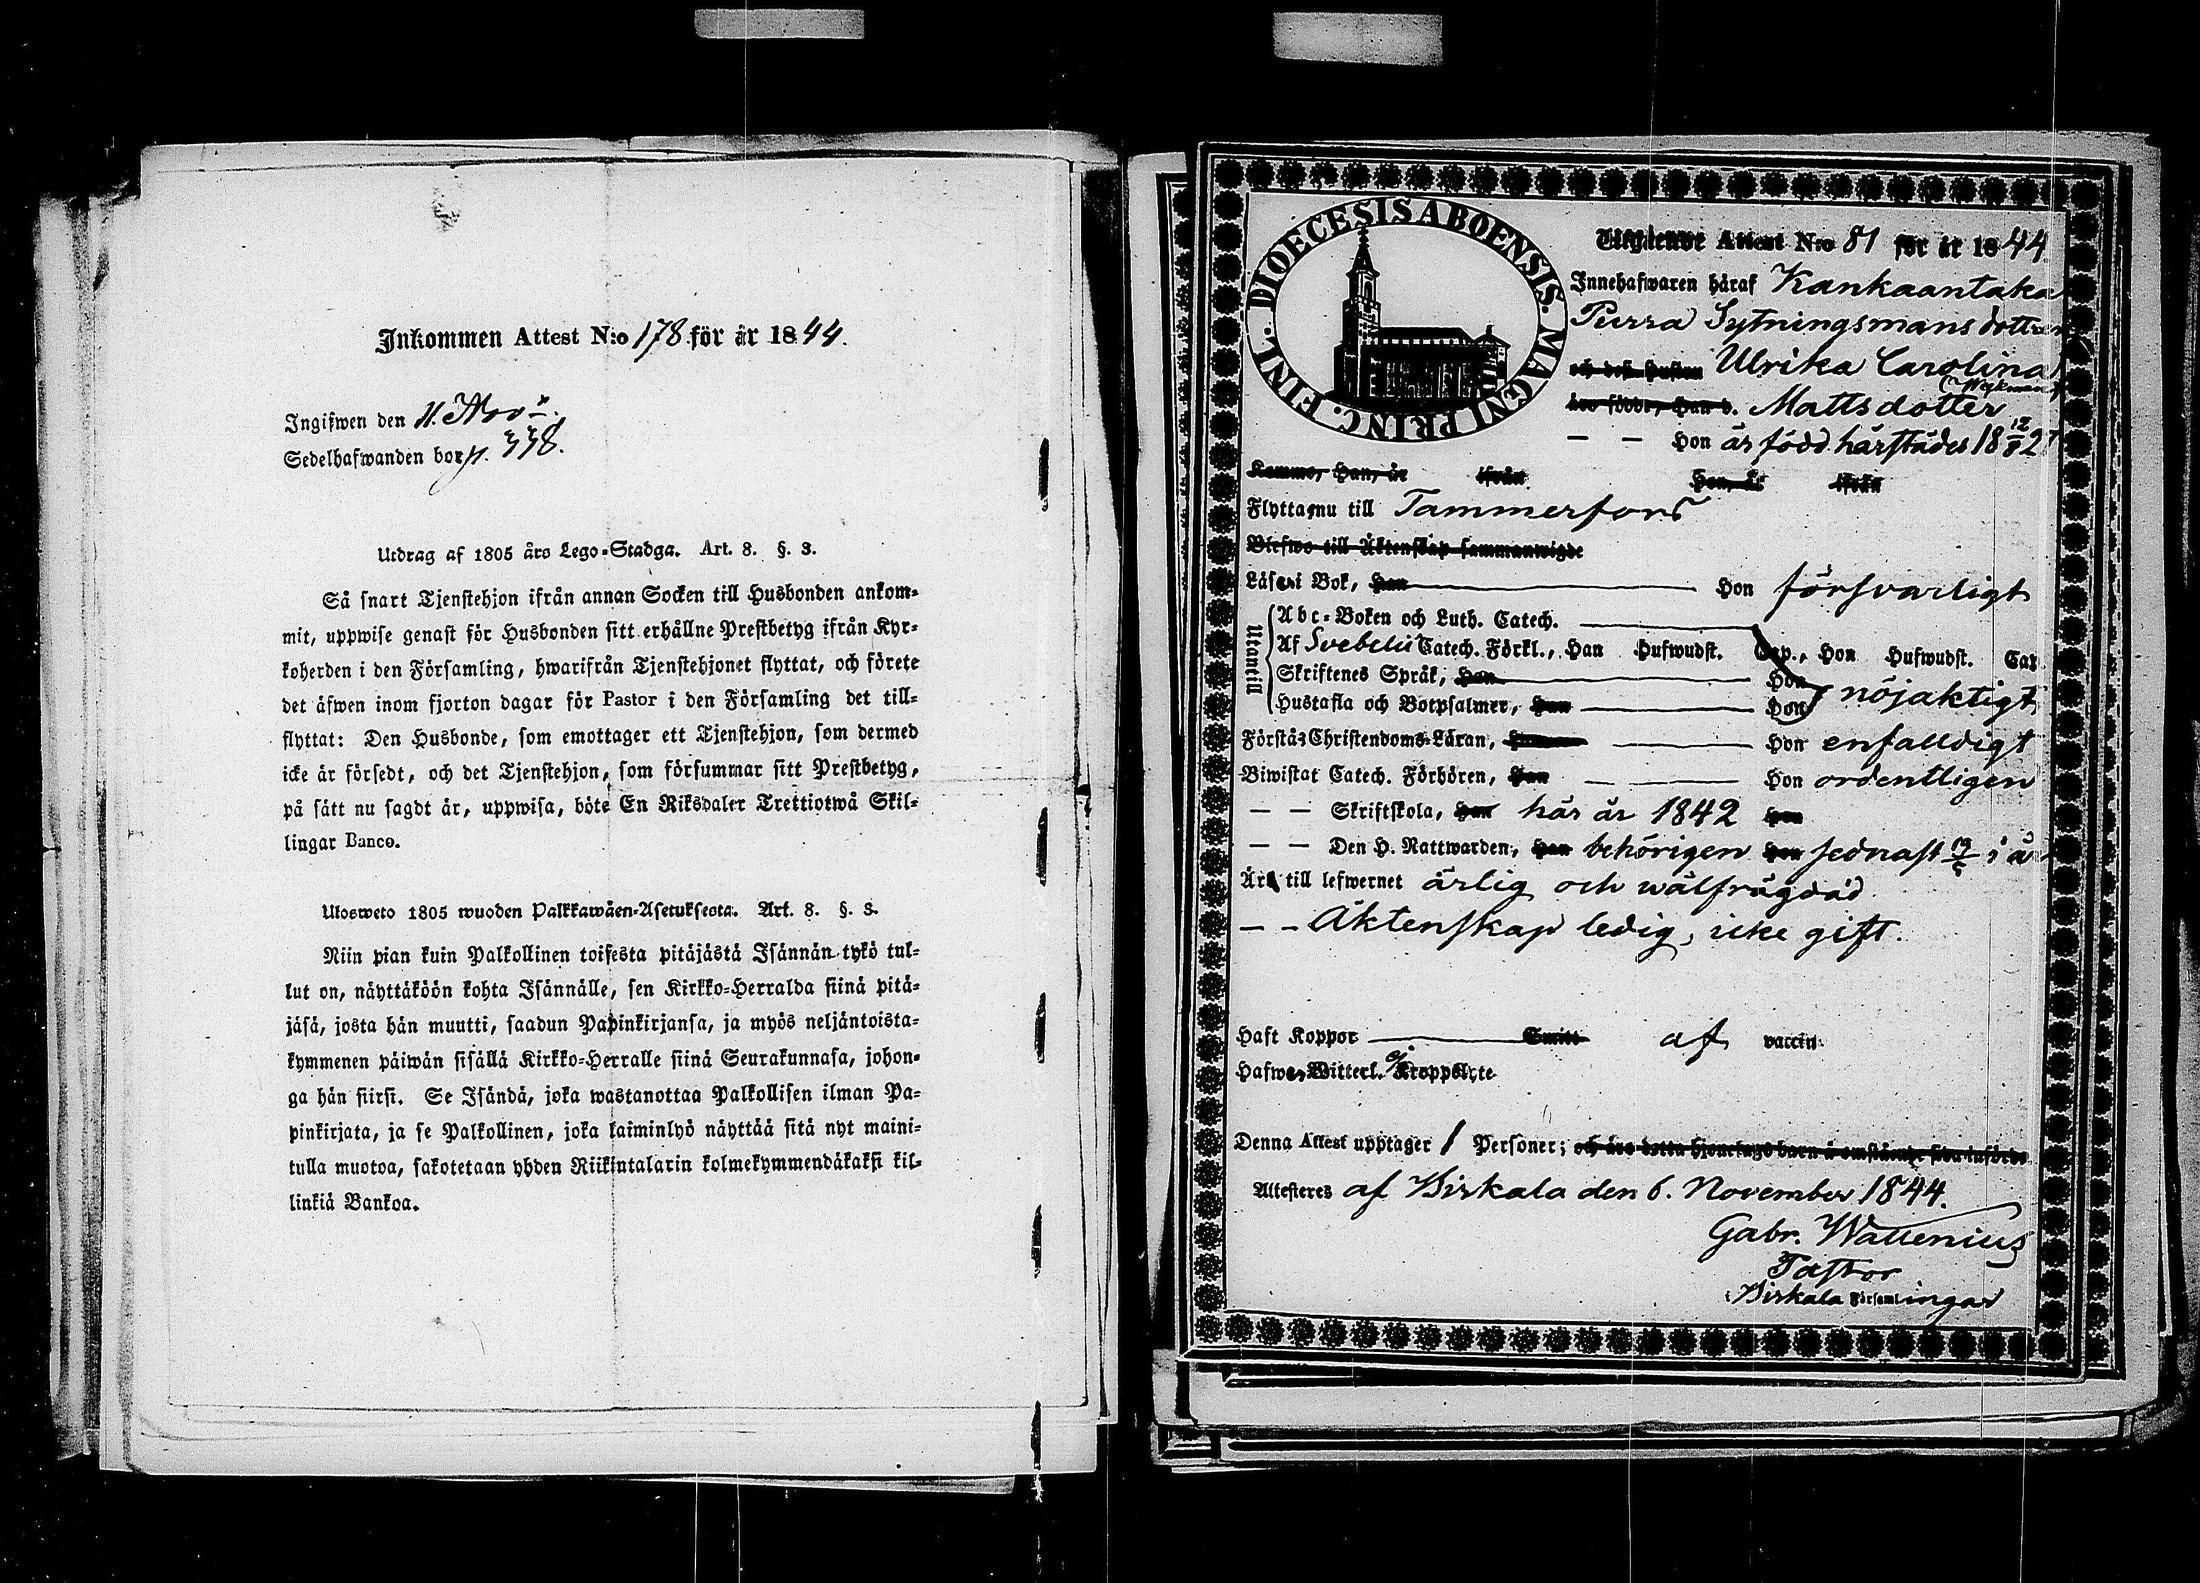 Inkommen Attest N:o 178 för år 1844.
Ingifwen den 11. Nov.
Sedelhafwanden bor p. 338.
Utdrag af 1805 års Lego-Stadga. Art. 8. §. 3.
Så snart Tjenstehjon ifrån annan Socken till Husbonden ankom-
mit, uppwise genast för Husbonden sitt erhållne Prestbetyg ifrån Kyr-
koherden i den Församling, hwarifrån Tjenstehjonet flyttat, och förete
det äfwen inom fjorton dagar för Pastor i den Församling det till-
flyttat: Den Husbonde, som emottager ett Tjenstehjon, som dermed
icke är försedt, och det Tjenstehjon, som försummar sitt Prestbetyg,
på sätt nu sagdt är, uppwisa, böte En Riksdaler Trettiotwå Skil-
lingar Banco.
Ulosweto 1805 wuoden Palkkawäen-Asetuksesta. Art. 8. §. 3.
Niin pian kuin Palkollinen toisesta pitäjästä Isännän tykö tul-
lut on, näyttäköön kohta Isännälle, sen Kirkko-Herralda siinä pitä-
jäsä, josta hän muutti, saadun Papinkirjansa, ja myös neljäntoista-
kymmenen päiwän sisällä Kirkko-Herralle siinä Seurakunnasa, johon-
ga hän siirsi. Se Isändä, joka wastanottaa Palkollisen ilman Pa-
pinkirjata, ja se Palkollinen, joka laiminlyö näyttää sitä nyt maini-
tulla muotoa, sakotetaan yhden Riikintalarin kolmekymmendäkaksi kil-
linkiä Bankoa.
DIOECESIS ABOENSIS. MAGNI PRINC. FINL.
Utgående Attest N:o 81 för år 1844.
Innehafwaren häraf Kankaantaka
Purra Sytningsmans dottren
och dess hustru Ulrika Carolina
(Wijkman)
äro födde, Han d. Mattsdotter
— — Hon är född härstädes 18 12/8 27
Komme, Han, år ifrån Hon, år ifrån
Flyttar nu till Tammerfors
Blefwo till Äktenskap sammanwigde
Läser i Bok, Han Hon försvarligt
Utantill
Abc-Boken och Luth. Catech.
Af Svebelii Catech. Förkl., Han Hufwudst. Cap., Hon Hufwudst. Cap
Skriftenes Språk, Han Hon
Hustafla och Botpsalmer, Han Hon nöjaktigt
Förstår Christendoms-Läran, Hon enfalldigt
Biwistat Catech. Förhören, Han Hon ordentligen
— — Skriftskola, han här år 1842 hon
— — Den H. Nattwarden, han behörigen hon sednast i år
Är till lefwernet ärlig och wälfrägdad
— — Äktenskap ledig, icke gift.
Haft Koppor Smitt af vaccin
Hafwer Witterl. ej Kroppslyte
Denna Attest upptager 1 Personer; och äro detta hjonelags barn å omstående sida införde
Attesteres af Birkala den 6. November 1844.
Gabr. Wallenius
Pastor
i Birkala Församlingar